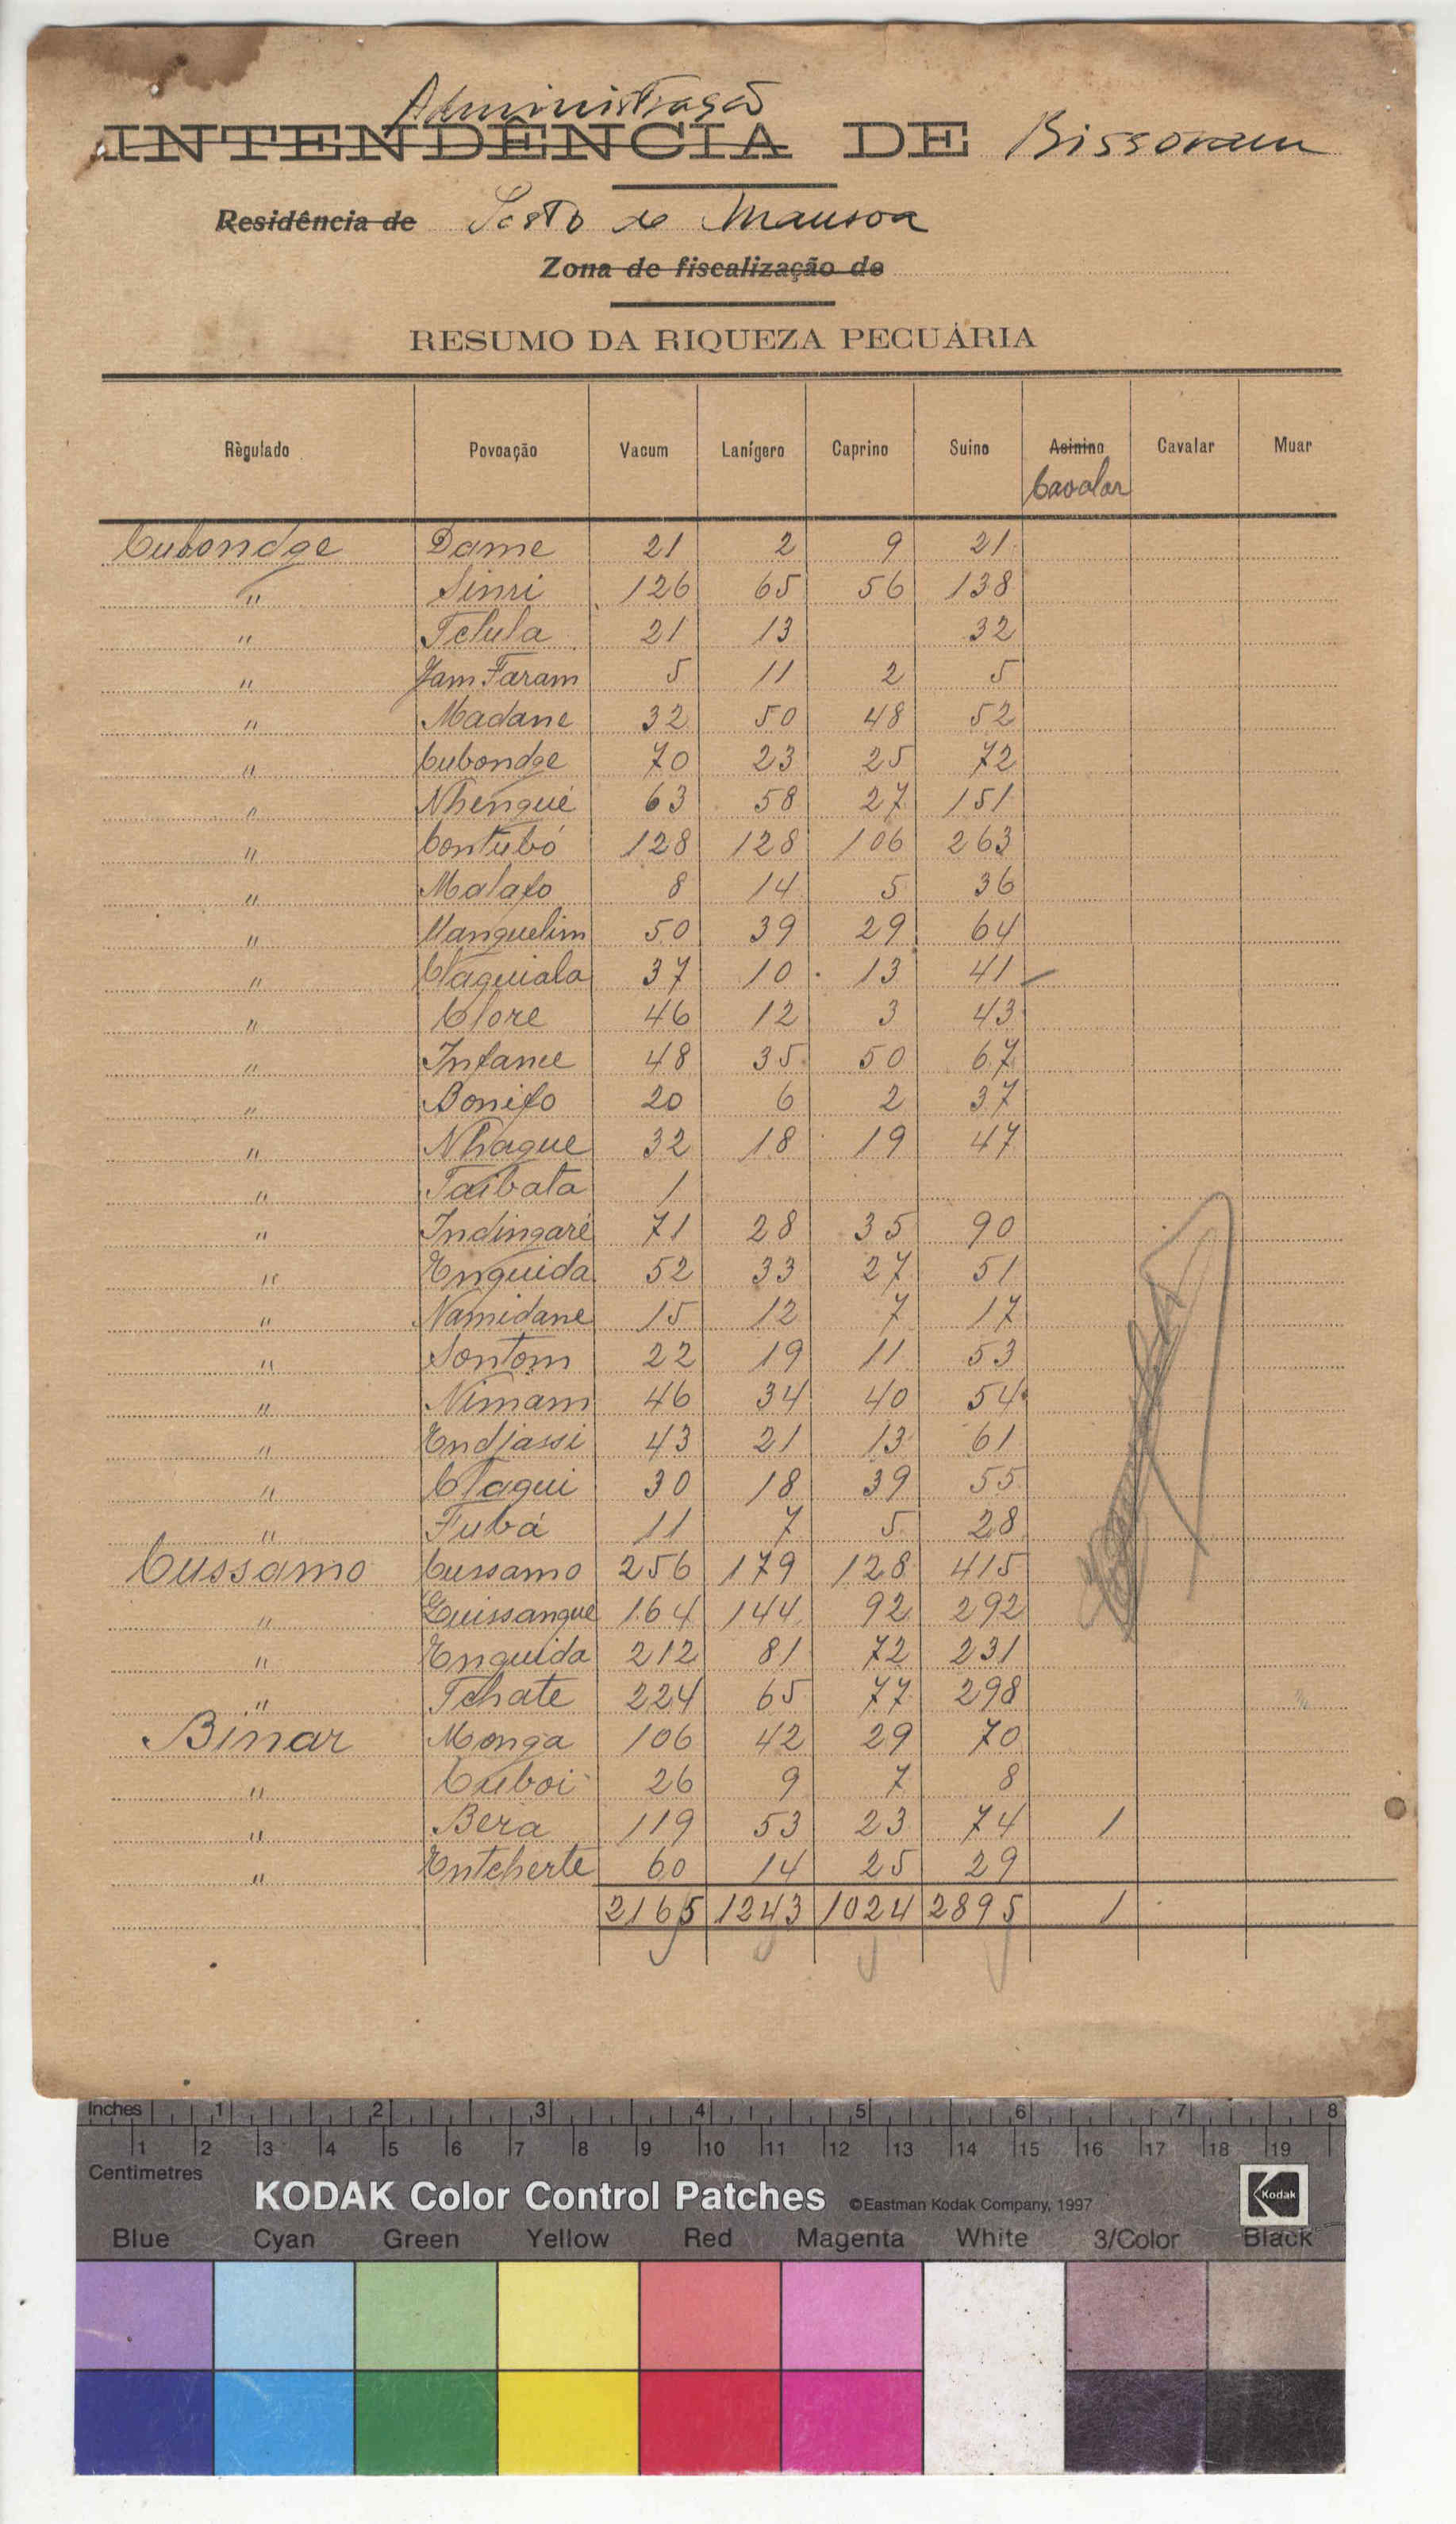 Administração
INTENDÊNCIA DE Bissoram
Residência de Posto de Mansoa
Zona de fiscalização de
RESUMO DA RIQUEZA PECUÁRIA
Règulado Povoação Vacum Lanígero Caprino Suino Asinino Cavalar Muar
Cavalar
Cubondge Dame 21 2 9 21
" Sinri 126 65 56 138
" Tchula 21 13 32
" Jam Faram 5 11 2 5
" Madane 32 50 48 52
" Cubondge 70 23 25 72
" Nhengué 63 58 27 151
" Contubó 128 128 106 263
" Malafo 8 14 5 36
" Manguelim 50 39 29 64
" Claquiala 37 10 13 41
" Clore 46 12 3 43
" Infane 48 35 50 67
" Bonifo 20 6 2 37
" Nhague 32 18 19 47
" Taibata 1
" Indingaré 71 28 35 90
" Enguida 52 33 27 51
" Namidane 15 12 7 17
" Sontom 22 19 11 53
" Nimam 46 34 40 54
" Endjassi 43 21 13 61
" Claqui 30 18 39 55
" Fubá 11 7 5 28
Cussamo Cussamo 256 179 128 415
" Quissangue 164 144 92 292
" Enguida 212 81 72 231
" Tchate 224 65 77 298
Binar Monga 106 42 29 70
" Cuboi 26 9 7 8
" Bera 119 53 23 74 1
" Entcherte 60 14 25 29
2165 1243 1024 2895 1
Inches 1 2 3 4 5 6 7 8
1 2 3 4 5 6 7 8 9 10 11 12 13 14 15 16 17 18 19
Centimetres
KODAK Color Control Patches ©Eastman Kodak Company, 1997 Kodak
Blue Cyan Green Yellow Red Magenta White 3/Color Black